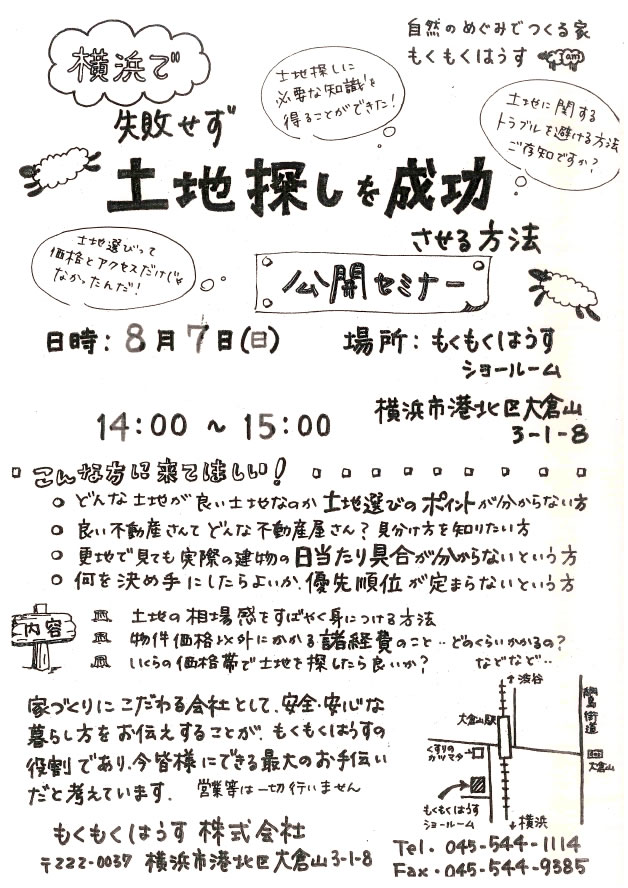 自然のめぐみでつくる家
もくもくはうす
am
横浜で
失敗せず
土地探しに
必要な知識を
得ることができた!
土地に関する
トラブルを避ける方法
ご存知ですか?
土地探しを成功
させる方法
土地選びって
価格とアクセスだけじゃ
なかったんだ!
公開セミナー
日時:8月7日(日)
14:00 ~ 15:00
場所:もくもくはうす
ショールーム
横浜市港北区大倉山
3-1-8
こんな方に来てほしい!
どんな土地が良い土地なのか土地選びのポイントが分からない方
良い不動産さんてどんな不動産屋さん?見分け方を知りたい方
更地で見ても実際の建物の日当たり具合が分からないという方
何を決め手にしたらよいか、優先順位が定まらないという方
内容
土地の相場感をすばやく身につける方法
物件価格以外にかかる諸経費のこと‥どのくらいかかるの?
いくらの価格帯で土地を探したら良いか? などなど‥
家づくりにこだわる会社として、安全・安心な
暮らし方をお伝えすることが、もくもくはうすの
役割であり、今皆様にできる最大のお手伝い
だと考えています。 営業等は一切行いません
↑渋谷
綱島街道
大倉山駅
くすりの
カツマタ
大倉山
もくもくはうす
ショールーム
↓横浜
もくもくはうす 株式会社
〒222-0037 横浜市港北区大倉山3-1-8
Tel. 045-544-1114
Fax. 045-544-9385